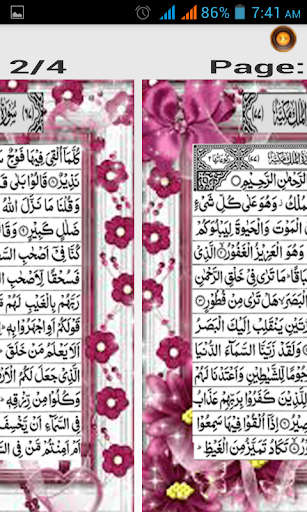 86% 7:41 AM
2/4
Page:
تَبٰرَكَ الَّذِىْ ٢٩
(٦٧)
الرَّحْمٰنِ الرَّحِيْمِ
مُلْكُ وَهُوَ عَلٰى كُلِّ شَىْءٍ
مَوْتَ وَالْحَيٰوةَ لِيَبْلُوَكُمْ
وَهُوَ الْعَزِيْزُ الْغَفُوْرُ الَّذِىْ
بَاقًا مَا تَرٰى فِىْ خَلْقِ الرَّحْمٰنِ
هَلْ تَرٰى مِنْ فُطُوْرٍ
تَيْنِ يَنْقَلِبْ اِلَيْكَ الْبَصَرُ
وَلَقَدْ زَيَّنَّا السَّمَآءَ الدُّنْيَا
جُوْمًا لِّلشَّيٰطِيْنِ وَاَعْتَدْنَا
كَفَرُوْا بِرَبِّهِمْ عَذَابُ
اِذَآ اُلْقُوْا فِيْهَا سَمِعُوْا
تَكَادُ تَمَيَّزُ مِنَ الْغَيْظِ
(٦٧)
كُلَّمَآ اُلْقِىَ فِيْهَا فَوْجٌ
نَذِيْرٌ قَالُوْا بَلٰى
وَقُلْنَا مَا نَزَّلَ اللّٰهُ
ضَلٰلٍ كَبِيْرٍ وَقَا
فِىْٓ اَصْحٰبِ ال
فَسُحْقًا لِّاَصْحٰبِ ال
رَبَّهُمْ بِالْغَيْبِ لَهُمْ
قَوْلَكُمْ اَوِ اجْهَرُوْا بِهٖ
اَلَا يَعْلَمُ مَنْ خَلَقَ
الَّذِىْ جَعَلَ لَكُمُ الْ
وَكُلُوْا مِنْ رِّزْقِهٖ
فِى السَّمَآءِ اَنْ يَّخْسِفَ
اَمْ اَمِنْتُمْ مَّنْ فِى ال